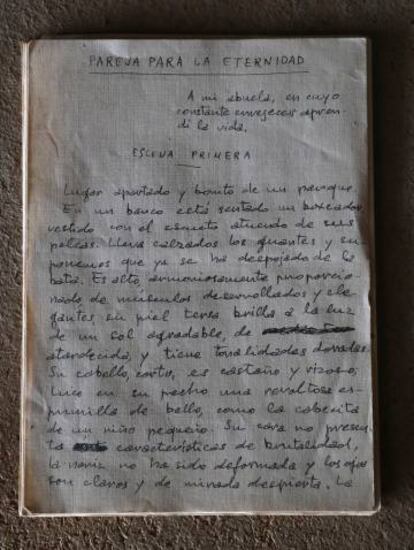 PAREJA PARA LA ETERNIDAD
A mi abuela, en cuyo
constante envejecer apren-
dí la vida.
ESCENA PRIMERA
Lugar apartado y bonito de un parque.
En un banco está sentado un boxeador
vestido con el escueto atuendo de sus
peleas. Lleva calzados los guantes y su-
ponemos que ya se ha despojado de la
bata. Es alto, armoniosamente proporcio-
nado, de músculos desarrollados y ele-
gantes, su piel tersa brilla a la luz
de un sol agradable, de
atardecida, y tiene tonalidades doradas.
Su cabello, corto, es castaño y vizoso;
luce en su pecho una revoltosa es-
pumilla de bello, como la cabecita
de un niño pequeño. Su cara no presen-
ta características de brutalidad,
la nariz no ha sido deformada y los ojos
son claros y de mirada despierta. La